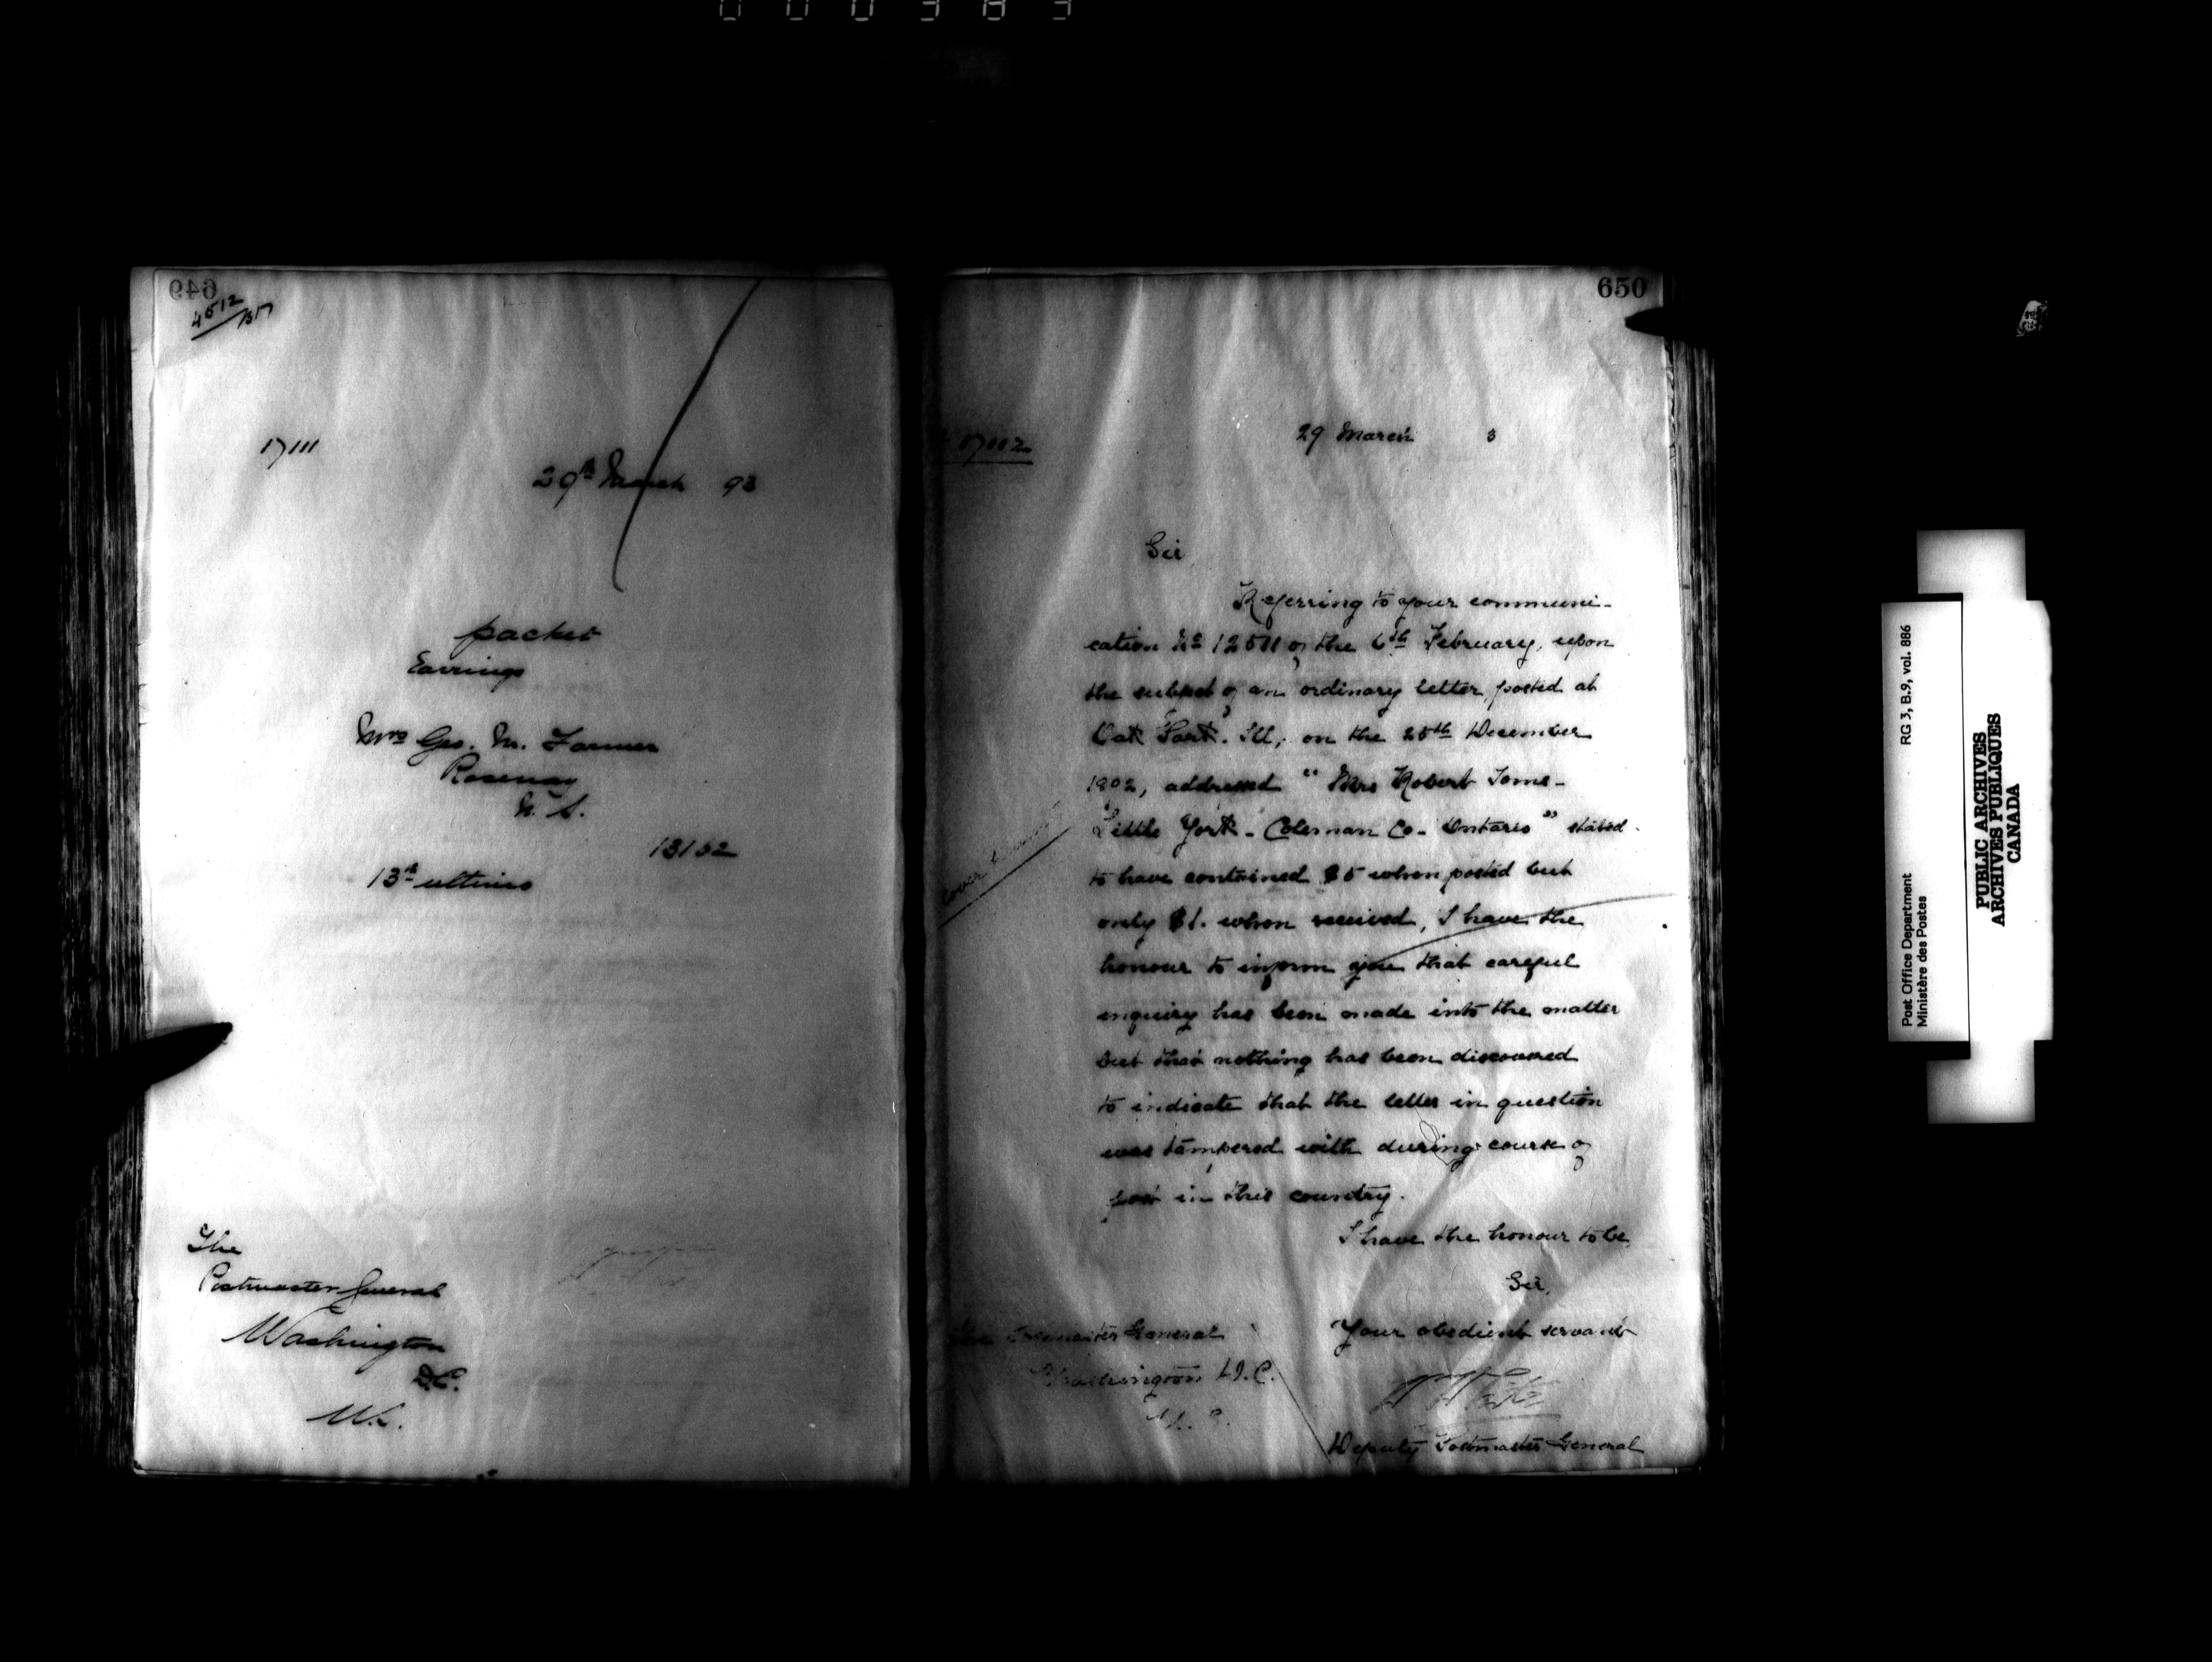 000383
649
4512/1317
17111
29th March 93
packet
Earrings
Mrs Geo. M. Farmer
Roseway
N. S.
13152
13th ultimo
The
Postmaster General
Washington
D.C.
650
17002
29 March 3
Sir
Referring to your communi-
cation No 12511 of the 6th February, upon
the subject of an ordinary letter, posted at
Oak Park. Ill, on the 25th December
1892, addressed "Mrs Robert Toms-
Little York - Coleman Co - Ontario" stated
to have contained $5 when posted but
only $1. when received, I have the
honour to inform you that careful
enquiry has been made into the matter
but that nothing has been discovered
to indicate that the letter in question
was tampered with during course of
post in this country.
I have the honour to be,
Sir,
Your obedient servant
Deputy Postmaster General
The Postmaster General
Washington D.C.
Cover
RG 3, B.9, vol. 886
Post Office Department
Ministère des Postes
PUBLIC ARCHIVES
ARCHIVES PUBLIQUES
CANADA